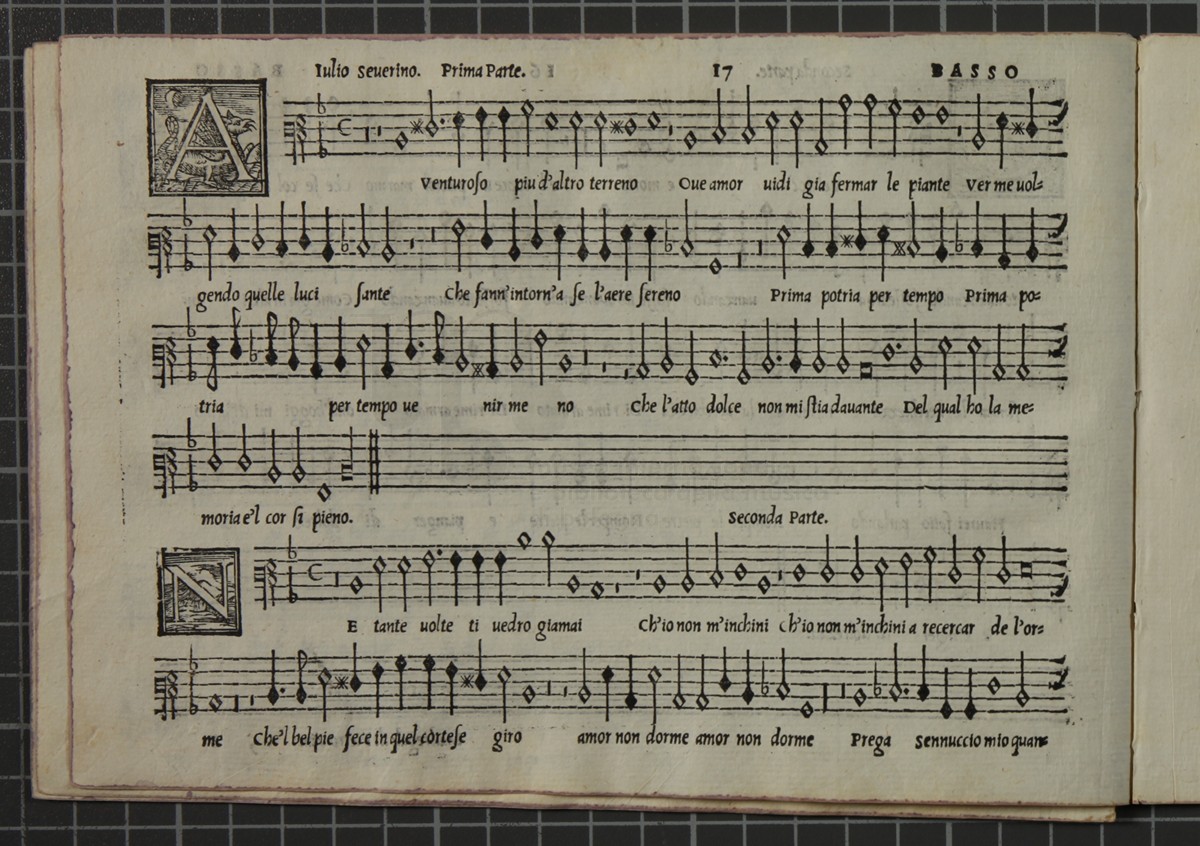 Iulio Seuerino. Prima Parte. 17 BASSO
A Venturoso piu d'altro terreno Oue amor uidi gia fermar le piante Ver me uol=
gendo quelle luci sante Che fann'intorn'a se l'aere sereno Prima potria per tempo Prima po=
tria per tempo ue nir me no Che l'atto dolce non mi stia dauante Del qual ho la me=
moria e'l cor si pieno.
Seconda Parte.
N E tante uolte ti uedro giamai Ch'io non m'inchini Ch'io non m'inchini a recercar de l'or=
me Che'l bel pie fece in quel cortese giro amor non dorme amor non dorme Prega Sennuccio mio quan=